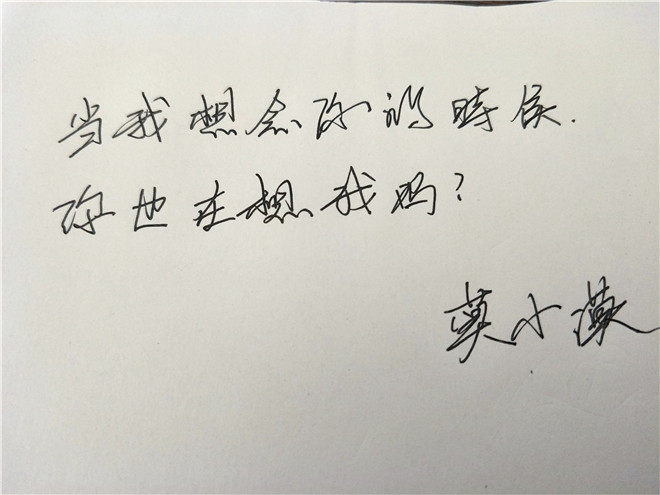 当我想念你的時侯.
你也在想我吗?
莫小漢